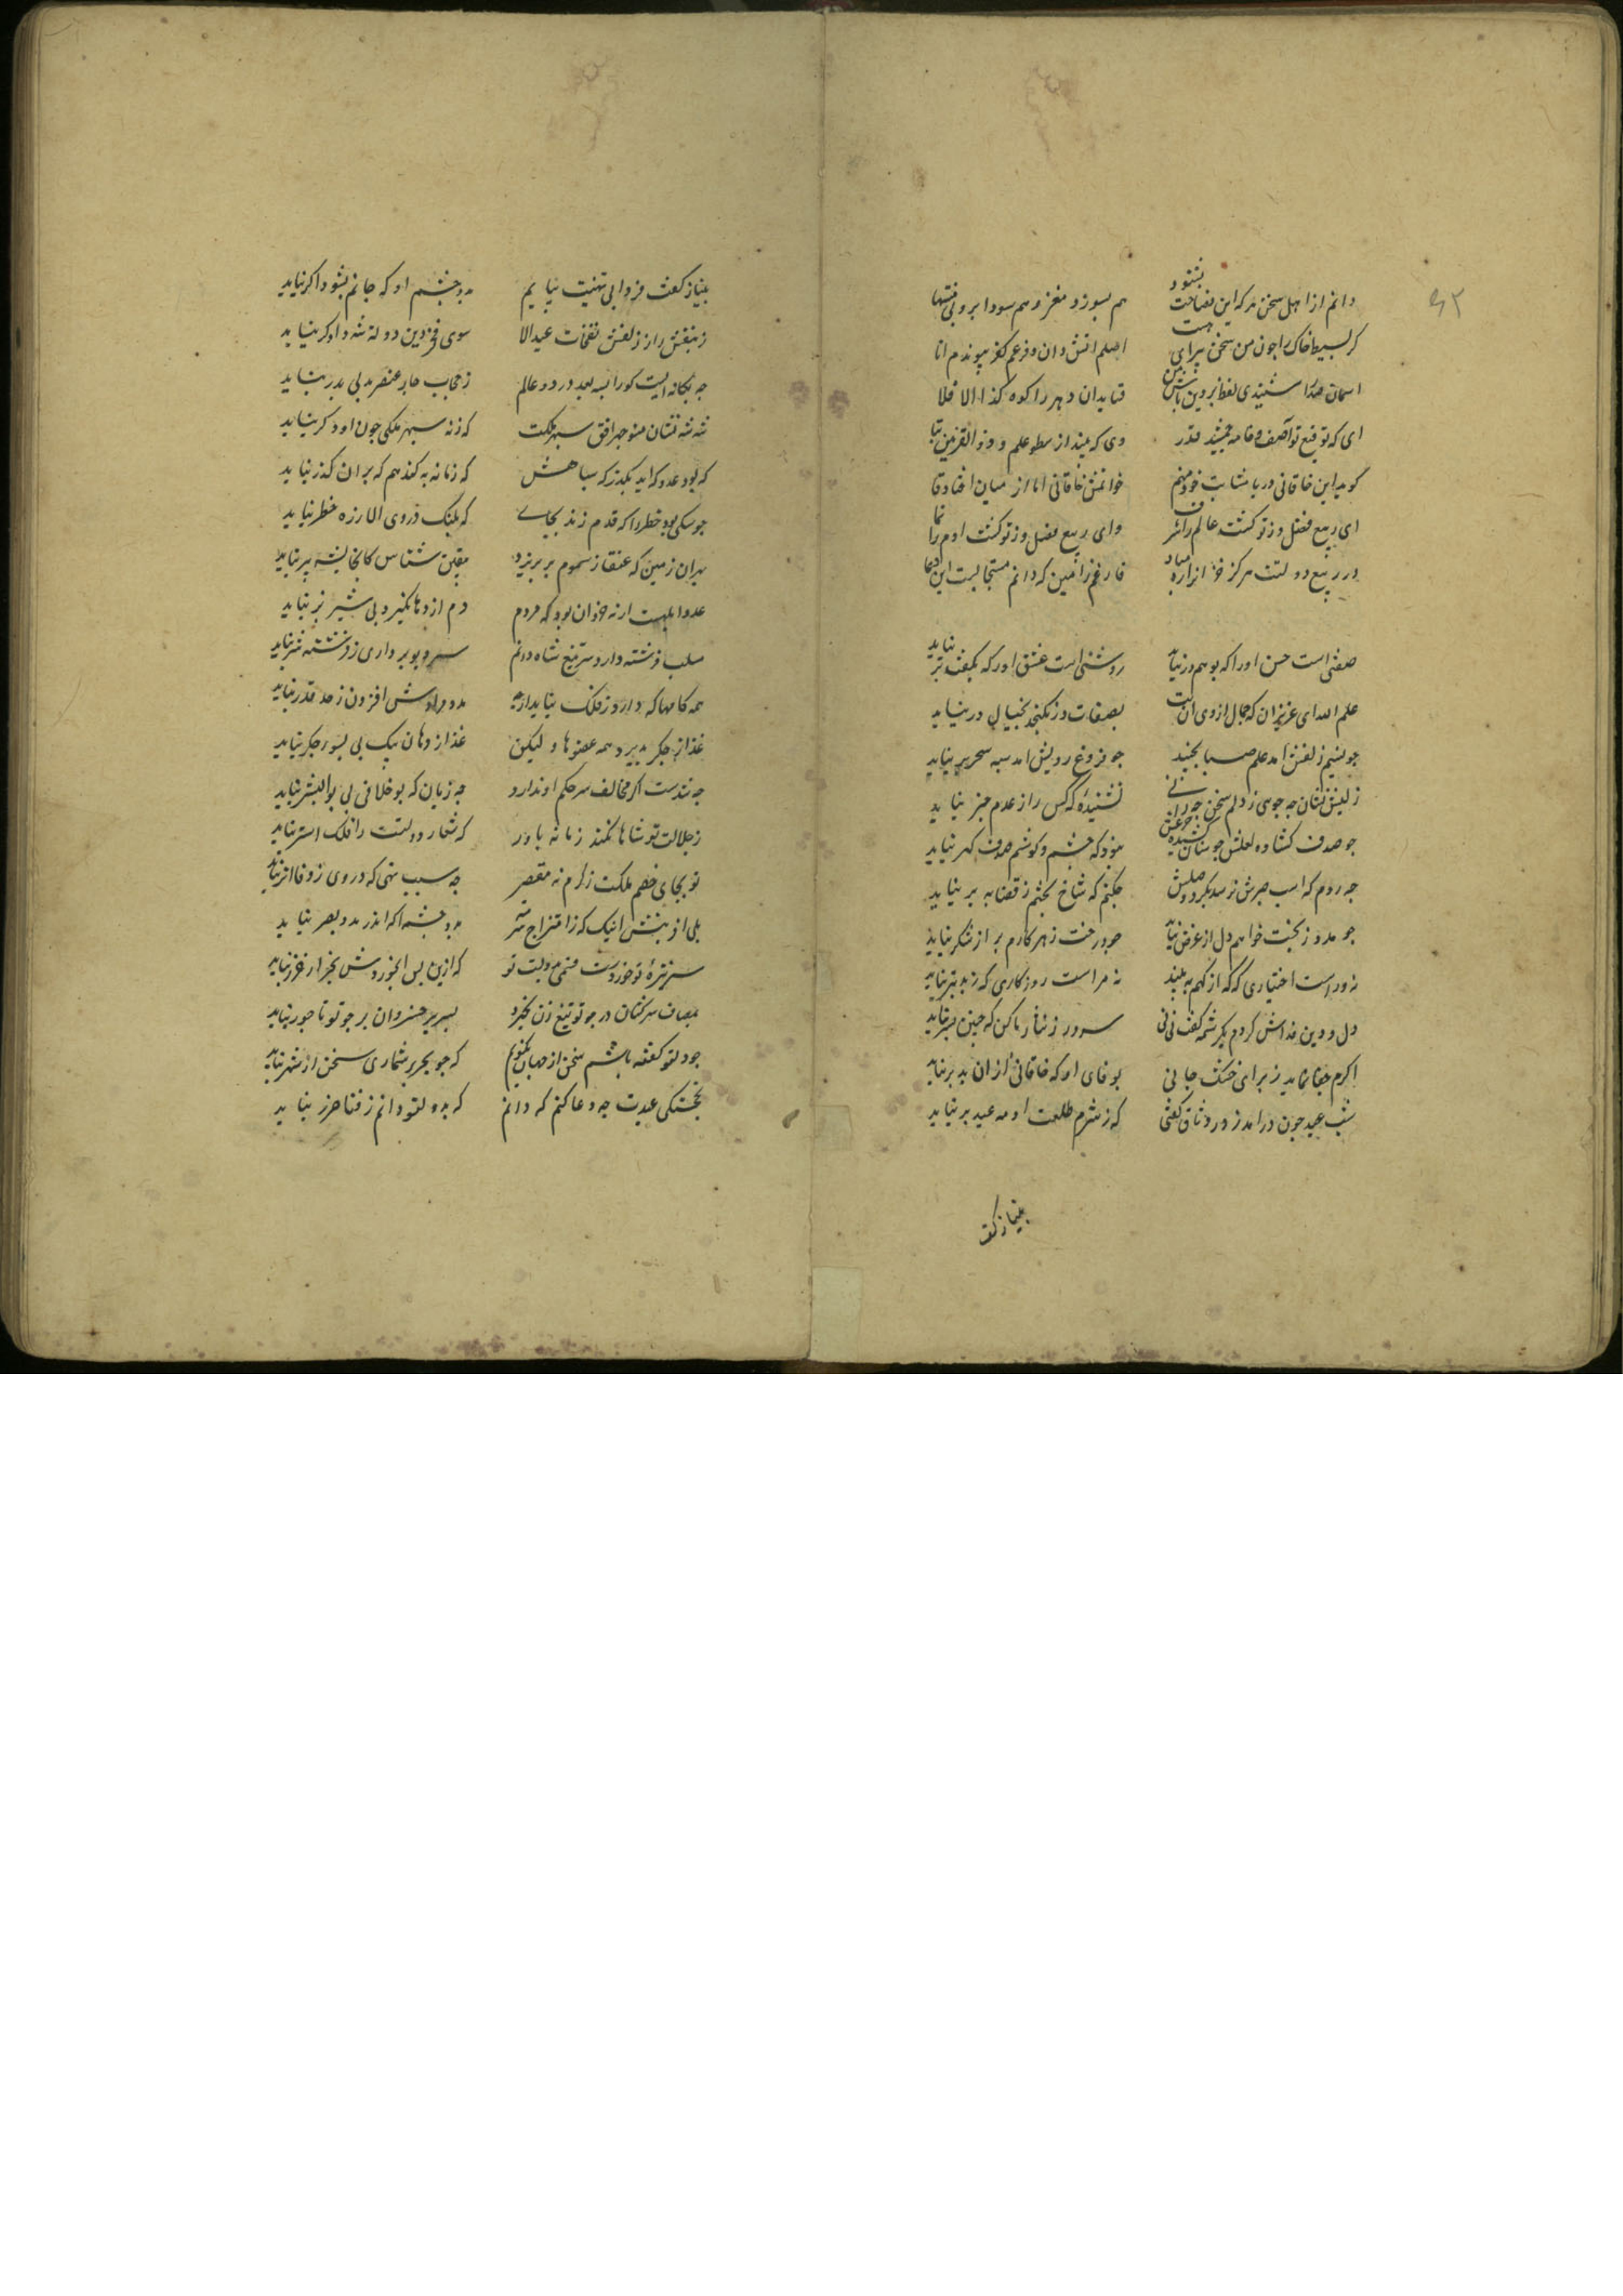 ۶۲
دانم از اهل سخن هر که این فصاحت بشنود هم بسوزد مغز و هم سودا برد بی منتها
گر بسیط خاک را چون من سخن پیرای هست اصلم آتش دان و فرعم کفر پیوندم
ای که توقیع تو آصف خامه جمشید قدر وی که
کوید این خاقانی دریا مثابت خود منم خوانمش خاقانی اما از میان افتاده قا
ای ربیع فضل وز تو کشت عالم را شرف وای ربیع فضل وز تو کشت آدم را نما
در ربیع دولتت هرکز خزان را ره مباد فارغم ز آمین که دانم مستجابست این دعا
صفتی است حسن او را که بوهم در نیاید روشی است عشق او را که بگفت بر نیاید
علم الله ای عزیزان که جمال از وی آنست بصفات در نکنجد بخیال در نیاید
چو نسیم زلفش آمد علم صبا بجنبد چو فروغ رویش آمد سپه سحر نیاید
ز لبش نشان چه جویی ز دلم سخن چه رانی نشنیده که کس را ز عدم خبر نیاید
چو صدف کشاده لعلش چو سنان کشیده نبود که چشم و کوشم صدف کهر نیاید
چه روم که اسب صبرش نرسد بکرد وصلش چکنم که شاخ بختم ز قضا به بر نیاید
چو مدد ز بخت خواهم دل از غرض نیابد چو درخت زهر کارم بر از شکر نیاید
نه وراست اختیاری که که از کهم به بیند نه مراست روزکاری که ز بد بتر نیاید
دل و دین فداش کردم بکرشمه کفت نی نی سر و زر نثار ما کن که چنین بسر نیاید
اکرم جفا نماید ز برای خشک جانی بوفای او که خاقانی از آن بدر نیاید
شب عید چون درآمد ز در وثاق کفتی که ز شرم طلعت او مه عید بر نیاید
بنیاز کفت
بنیاز کفت فردا پی تهنیت بیایم بدو چشم او که جانم بشود اکر نیاید
ز بنفش راز زلفش نفحات عید الا سوی فخر دین و دولت شه دادکر نیاید
چه یکانه ایست کو را بسه بعد در دو عالم ز حجاب چار عنصر بدلی بدر نیاید
شه شه نشان منوچهر افق سپهر ملکت که ز نه سپهر ملکی چون او دکر نیاید
که بود عدو که آید بکذرکه سپاهش که زمانه به کند هم که بر آن کذر نیاید
چو سکی بود خطر را که قدم زند بجایی که پلنک در وی الا ز ره خطر نیاید
بر آن زمین که عنقا ز سموم پر بریزد بیقین شناس کانجا پشه پر نیاید
عدو ابلهست ارنه خذلان بود که مردم دم اژدها کیرد پی شیر نر نیاید
سلب فرشته دارد سر تیغ شاه دانم سر دیو برداری ز فرشته شر نیاید
همه کامها که دارد ز فلک بیابد ارچه مدد مرادش افزون ز حد قدر نیاید
غذا از جکر پذیرد همه عضوها و لیکن غذا از دهان بیک پی بسوی جکر نیاید
چه تندست اکر مخالف سر حکم او ندارد چه زیان که بوخلافی پی بوالبشر نیاید
ز جلالت تو شاها نکند زمانه باور که شعار دولتت را فلک استر نیاید
تو بجای خصم ملکت ز کرم نه مقصر چه سبب تهی که در وی ز وفا اثر نیاید
بلی آفرینش اینک که ز امتزاج مدد بصر نیاید
سر نیزه تو خوردست قسمی دولت تو که ازین پس ابخوردش بجز از غرر نیاید
بمصاف سرکشان در چو تو تیغ زن نخیزد بسریر خسروان بر چو تو تاجور نیاید
چو دلتو کفته باشم سخن از جهان نکویم که چو بحر بر شماری سخن از شمر نیاید
بخجستکی عیدت چه دعا کنم که دانم که بدولتو دانم ز فنا حزر نیاید